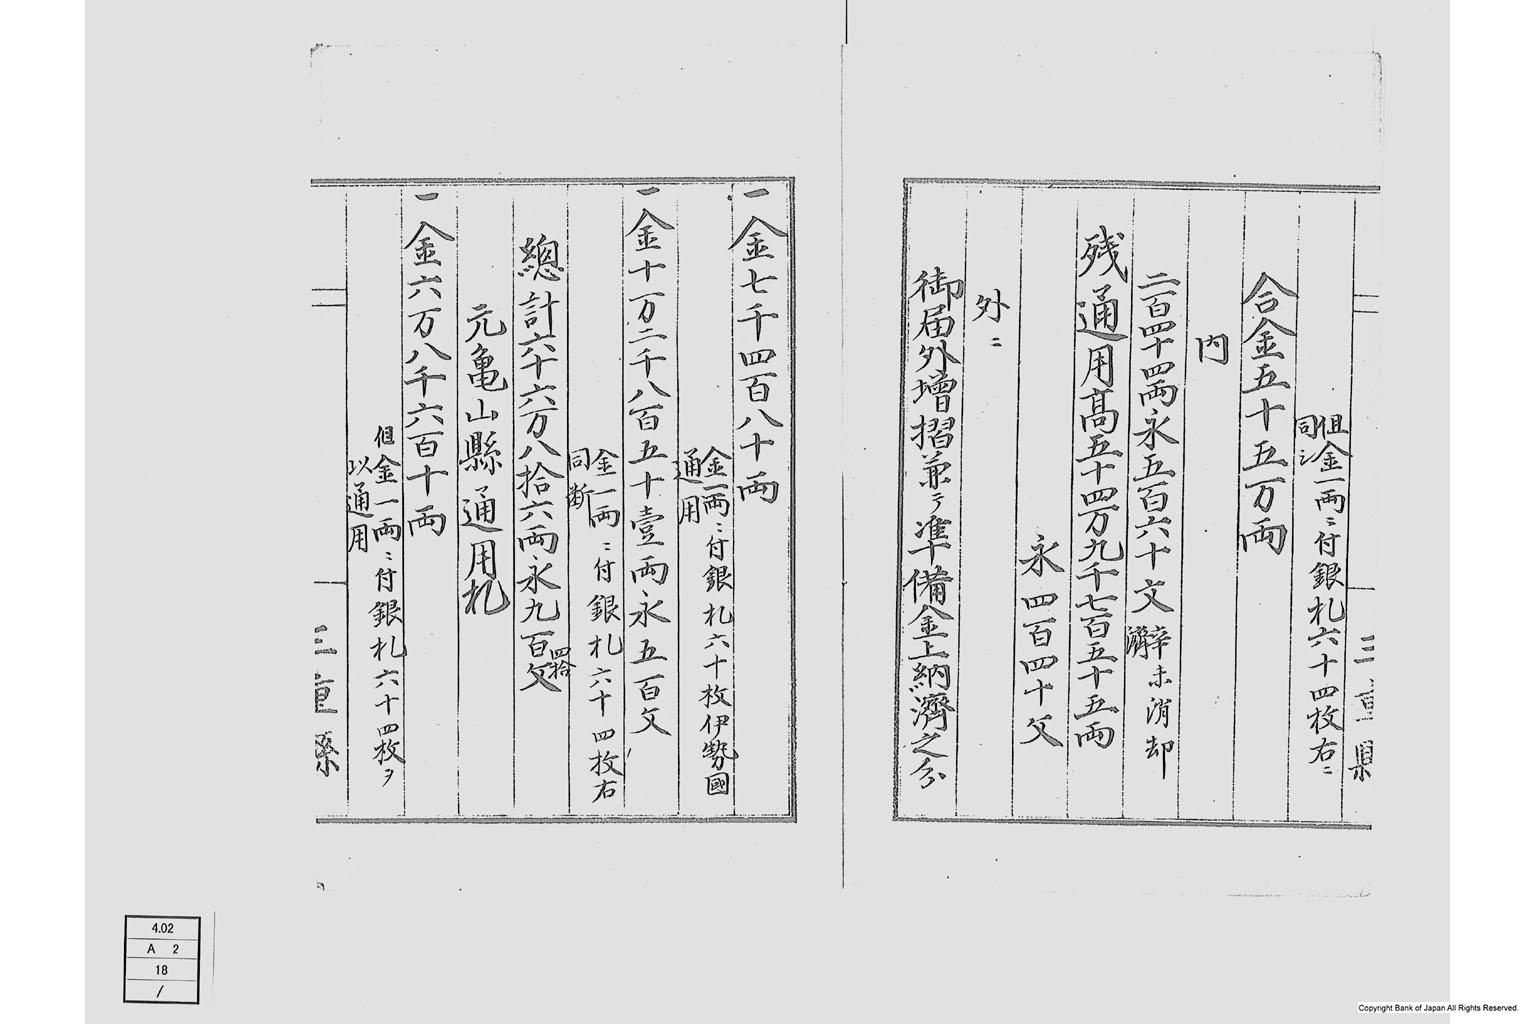 三重縣
但金一両ニ付銀札六十四枚右ニ
同シ
合金五十五万両
内
二百四十四両永五百六十文辛未消却
濟
残通用髙五十四万九千七百五十五両
永四百四十文
外ニ
御届外増摺兼テ準備金上納濟之分
一金七千四百八十両
金一両ニ付銀札六十枚伊勢國
通用
一金十万二千八百五十壹両永五百文
金一両ニ付銀札六十四枚右
同断
總計六十六万八拾六両永九百四拾文
元亀山縣通用札
一金六万八千六百十両
但金一両ニ付銀札六十四枚ヲ
以通用
三重縣
4.02
A 2
18
/
Copyright Bank of Japan All Rights Reserved.